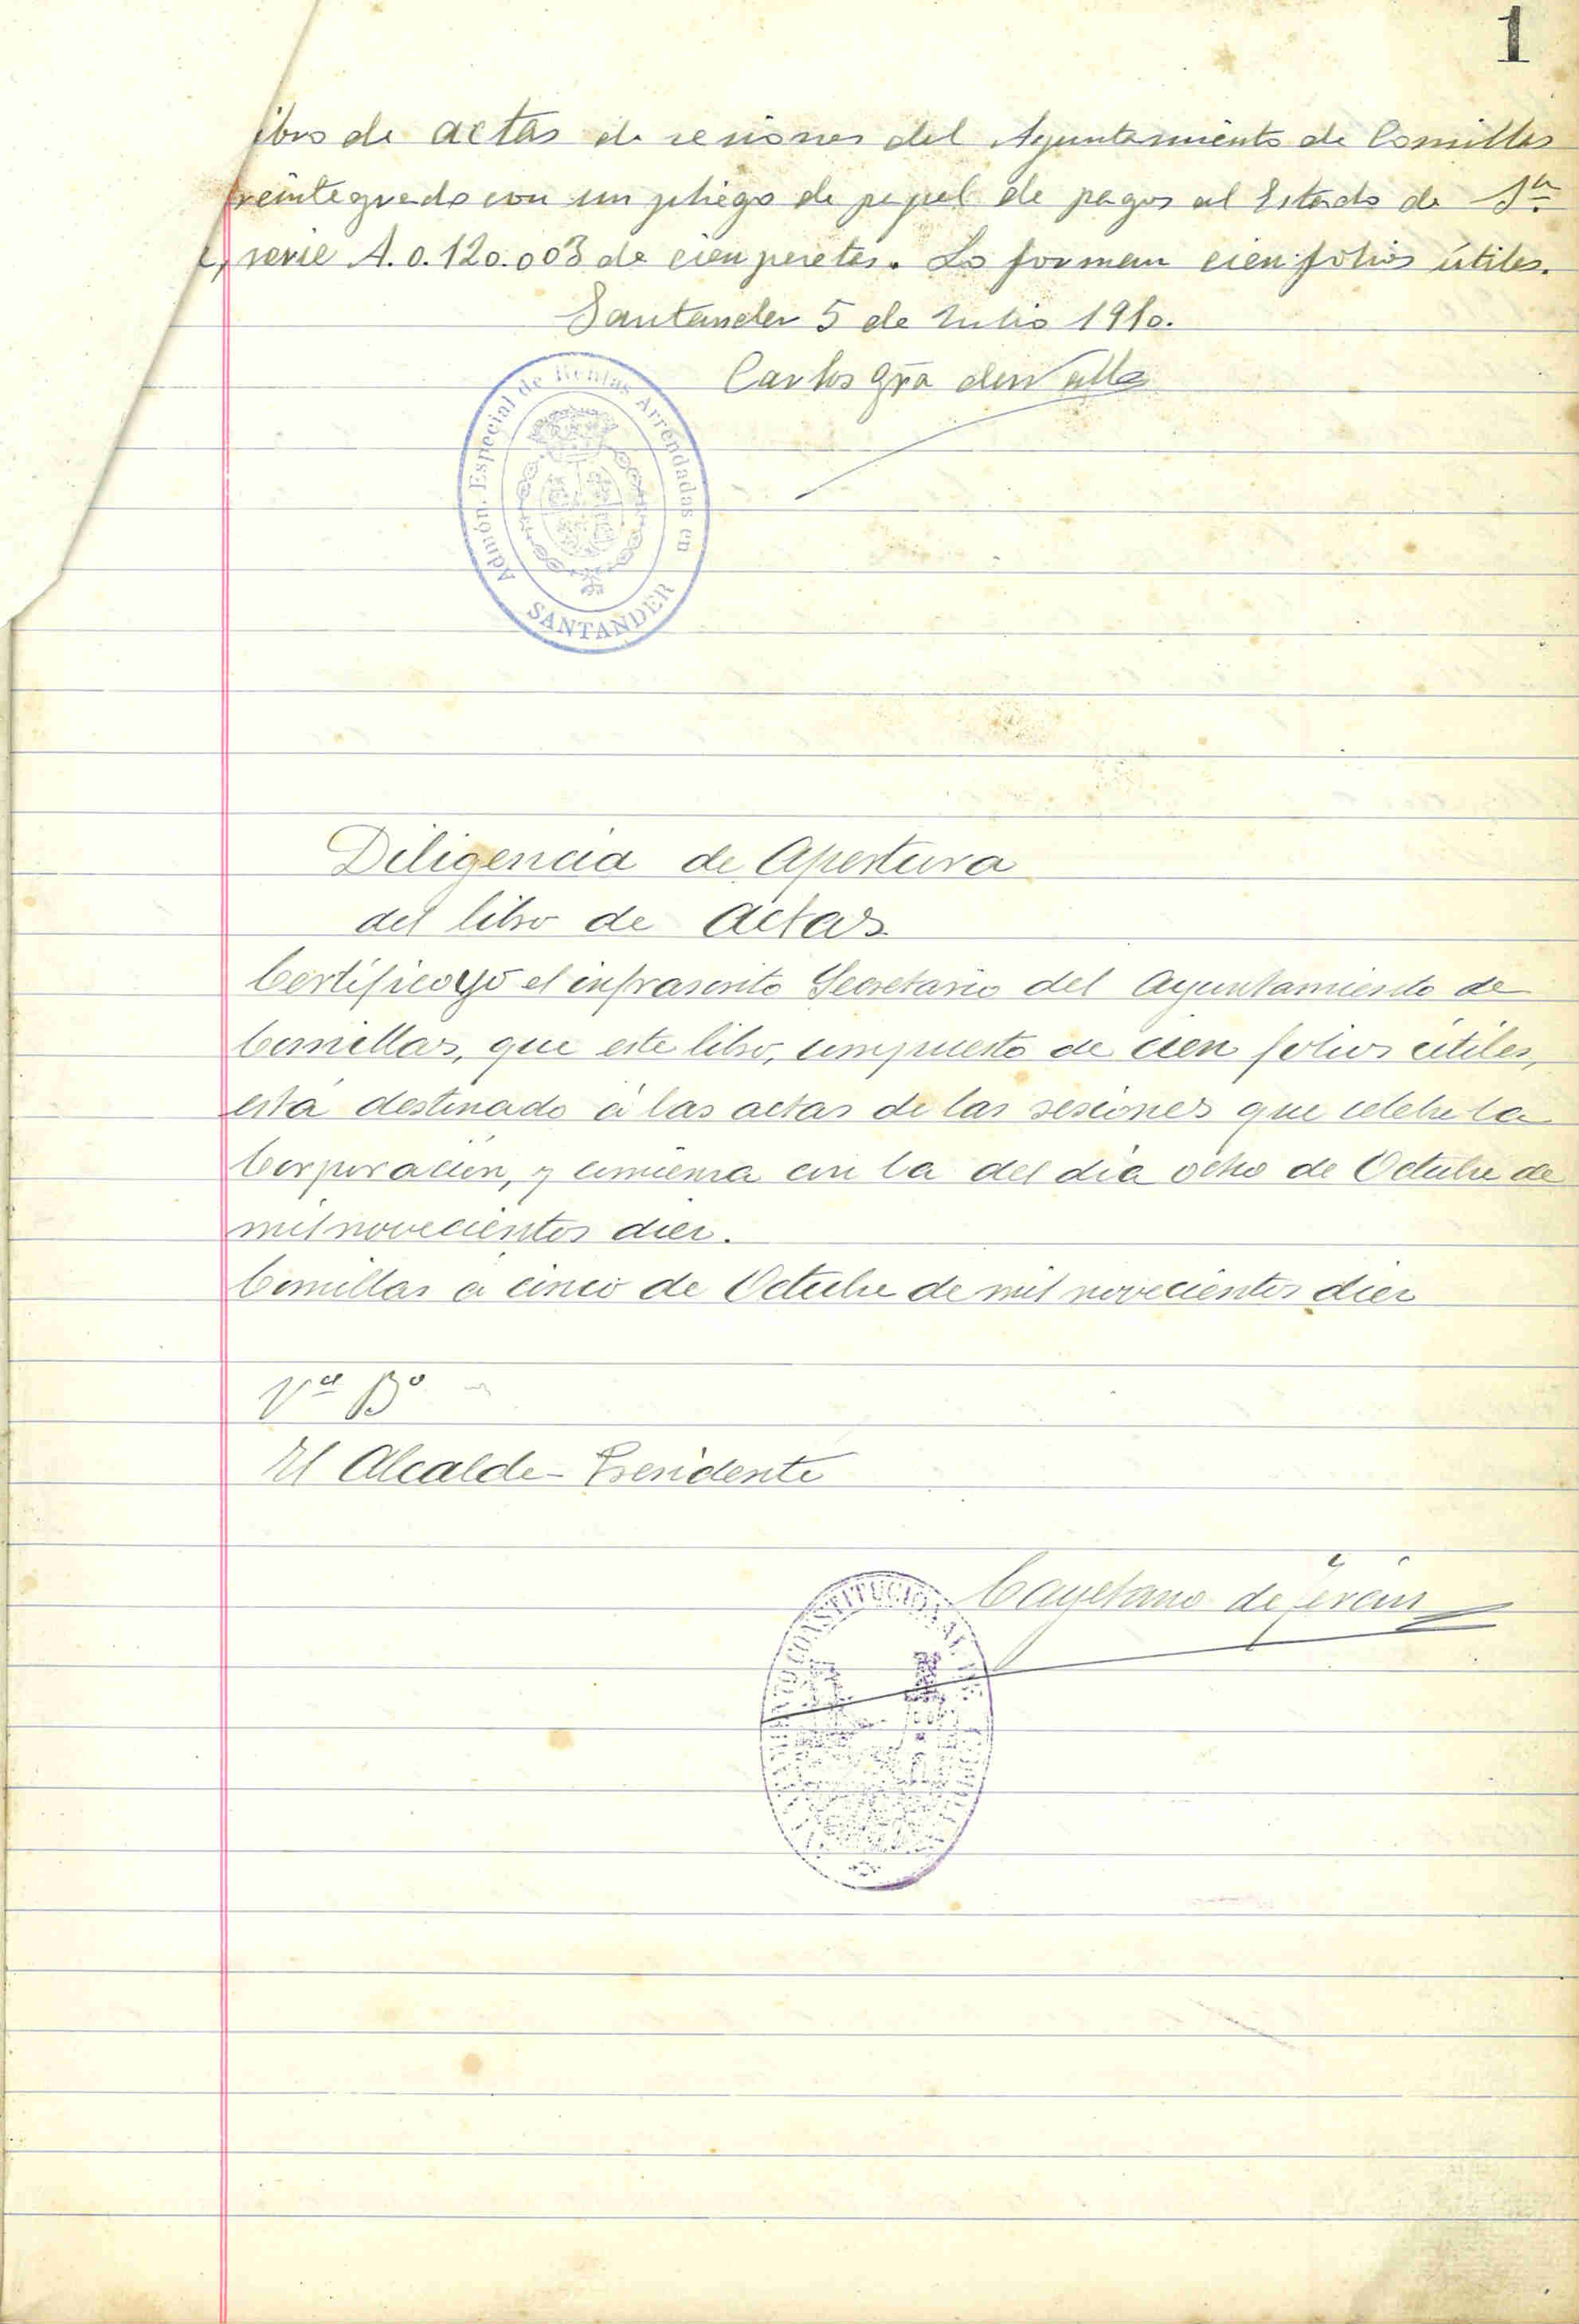 1
ibro de actas de sesiones del Ayuntamiento de Comillas
reintegrado con un pliego de papel de pagos al Estado de 1ª
serie A.0.120.003 de cien pesetas. Lo forman cien folios útiles.
Santander 5 de Julio 1910.
Carlos Gª del Valle
Admón. Especial de Rentas Arrendadas en
SANTANDER
Diligencia de Apertura
del libro de Actas
Certifico yo el infrascrito Secretario del Ayuntamiento de
Comillas, que este libro, compuesto de cien folios útiles,
está destinado á las actas de las sesiones que celebre la
Corporación, y comienza con la del día ocho de Octubre de
mil novecientos diez.
Comillas a cinco de Octubre de mil novecientos diez
Vº Bº
El Alcalde-Presidente
Cayetano de
CONSTITUCIONAL